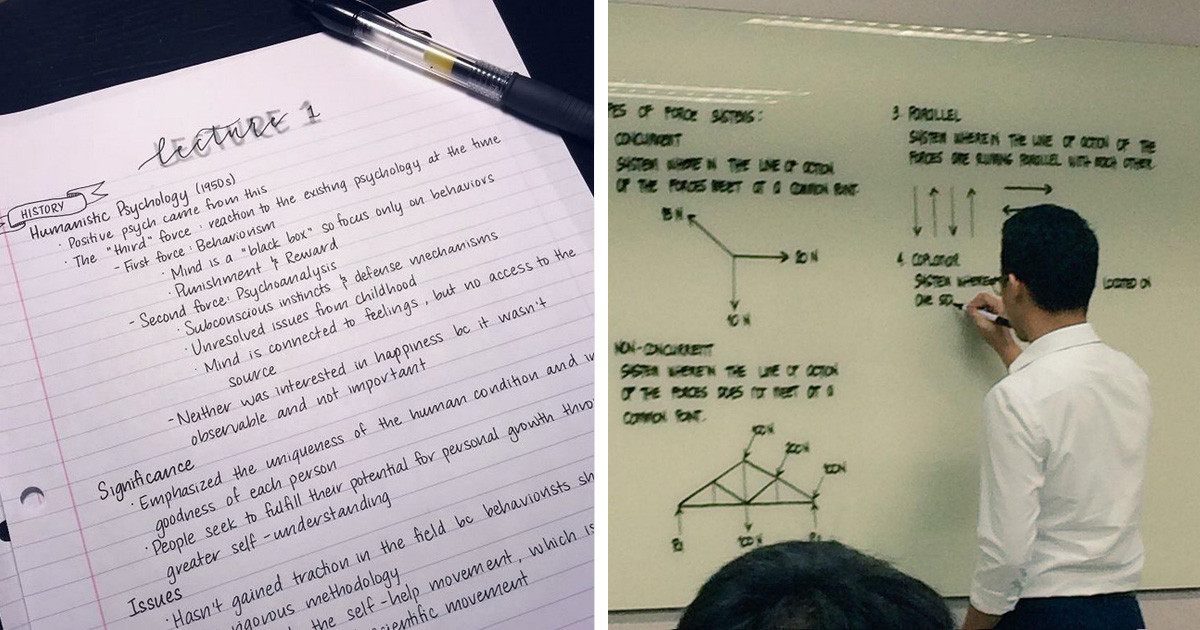 lecture 1
LECTURE
HISTORY
Humanistic Psychology (1950s)
· Positive psych came from this
· The "third" force : reaction to the existing psychology at the time
- First force : Behaviorism
· Mind is a "black box" so focus only on behaviors
· Punishment & Reward
- Second force: Psychoanalysis
· Subconscious instincts & defense mechanisms
· Unresolved issues from childhood
· Mind is connected to feelings, but no access to the
source
- Neither was interested in happiness bc it wasn't
observable and not important
Significance
· Emphasized the uniqueness of the human condition and
goodness of each person
· People seek to fulfill their potential for personal growth
greater self-understanding
Issues
· Hasn't gained traction in the field bc behaviorists
rigorous methodology
the self-help movement, which is
scientific movement
OF FORCE SYSTEMS:
CONCURRENT
SYSTEM WHERE IN THE LINE OF ACTION
OF THE FORCES MEET AT A COMMON POINT.
15 N
20 N
10 N
NON-CONCURRENT
SYSTEM WHEREIN THE LINE OF ACTION
OF THE FORCES DOES NOT MEET AT A
COMMON POINT.
100N
200N
100N
100 N
R1
3. PARALLEL
SYSTEM WHEREIN THE LINE OF ACTION OF THE
FORCES ARE RUNING PARALLEL WITH EACH OTHER.
4. COPLANAR
SYSTEM LOCATED ON
ONE